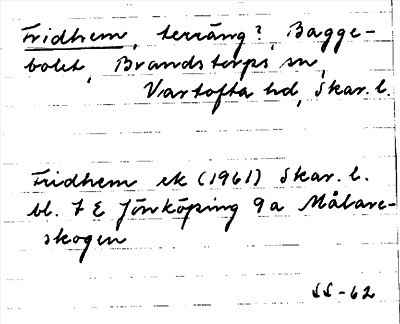 Fridhem, terräng?, Bagge-
bolet, Brandstorps sn,
Vartofta hd, Skar. l.
Fridhem ek (1961) Skar. l.
bl. 7 E Jönköping 9a Målare-
skogen
SS-62